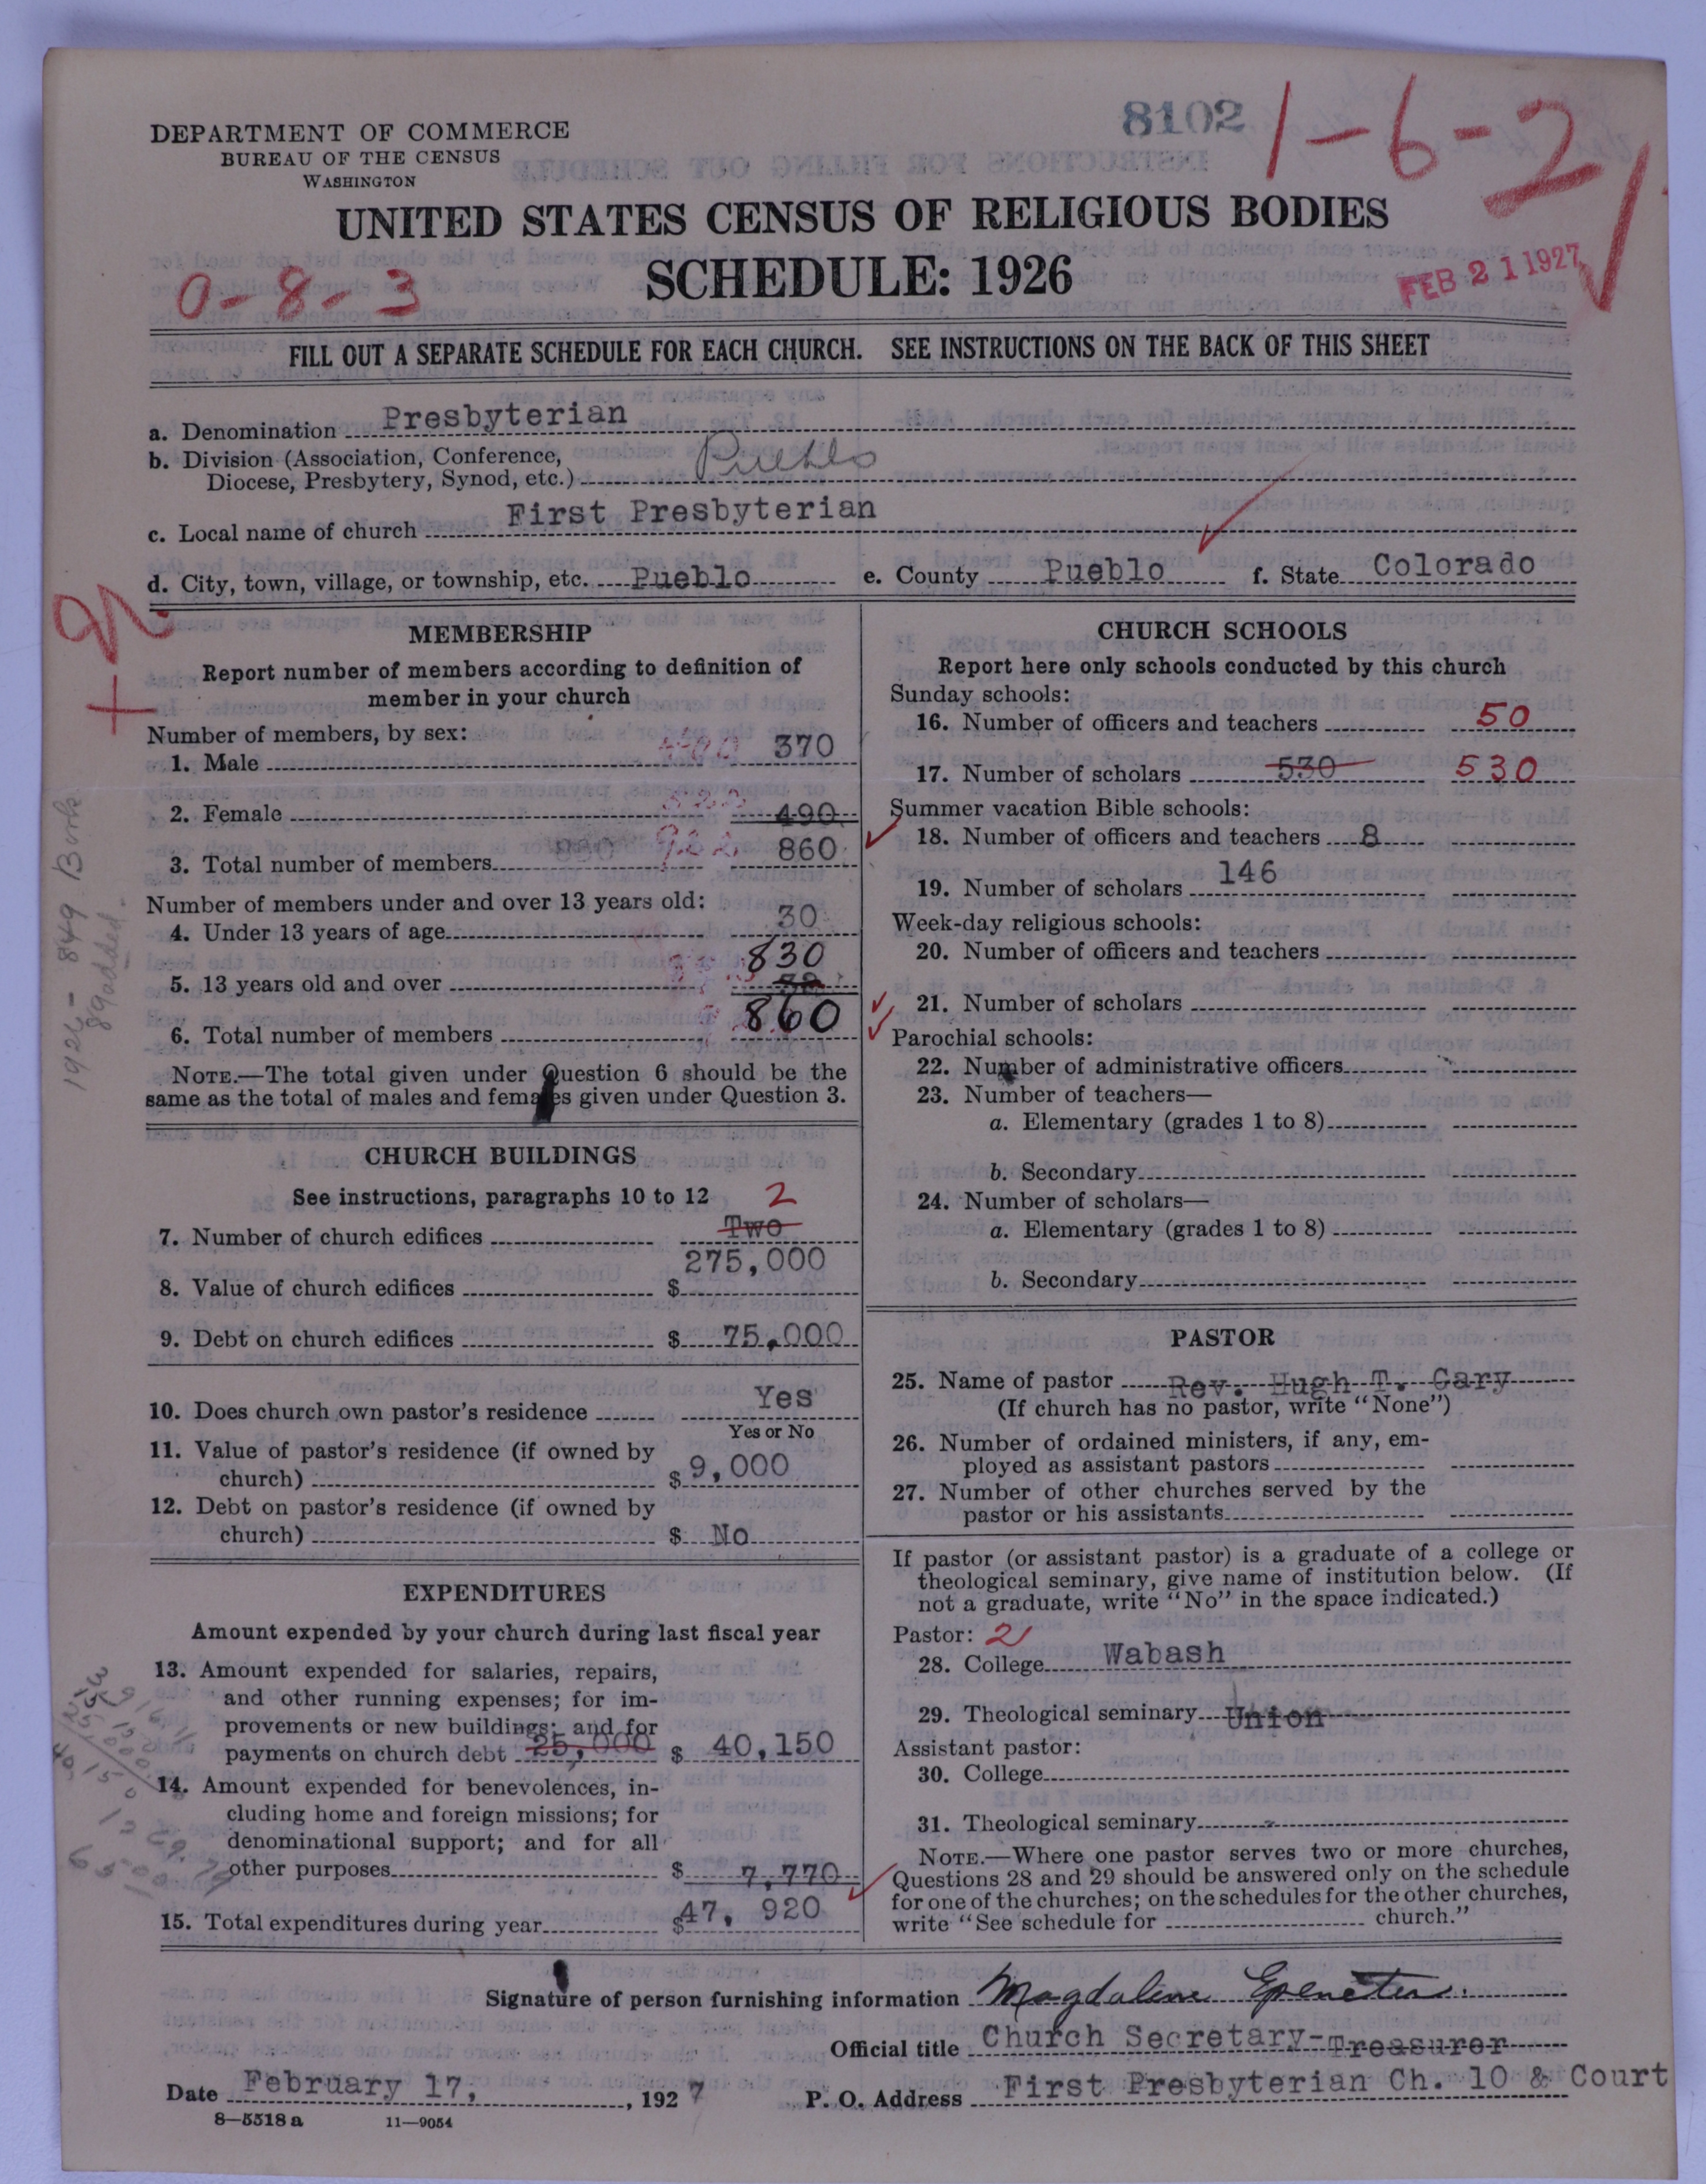 8102
1-6-2
DEPARTMENT OF COMMERCE
BUREAU OF THE CENSUS
WASHINGTON
UNITED STATES CENSUS OF RELIGIOUS BODIES
SCHEDULE: 1926
0-8-3
FEB 21 1927
FILL OUT A SEPARATE SCHEDULE FOR EACH CHURCH. SEE INSTRUCTIONS ON THE BACK OF THIS SHEET
a. Denomination Presbyterian
b. Division (Association, Conference,
Diocese, Presbytery, Synod, etc.) Pueblo
c. Local name of church First Presbyterian
d. City, town, village, or township, etc. Pueblo e. County Pueblo f. State Colorado
MEMBERSHIP
Report number of members according to definition of
member in your church
Number of members, by sex:
1. Male 370
2. Female 490
3. Total number of members 860
Number of members under and over 13 years old:
4. Under 13 years of age 30
5. 13 years old and over 830
6. Total number of members 860
NOTE.—The total given under Question 6 should be the
same as the total of males and females given under Question 3.
CHURCH BUILDINGS
See instructions, paragraphs 10 to 12 2
7. Number of church edifices Two
8. Value of church edifices $ 275,000
9. Debt on church edifices $ 75,000
10. Does church own pastor's residence Yes
Yes or No
11. Value of pastor's residence (if owned by
church) $ 9,000
12. Debt on pastor's residence (if owned by
church) $ No
EXPENDITURES
Amount expended by your church during last fiscal year
13. Amount expended for salaries, repairs,
and other running expenses; for im-
provements or new buildings; and for
payments on church debt 25,000 $ 40,150
14. Amount expended for benevolences, in-
cluding home and foreign missions; for
denominational support; and for all
other purposes $ 7,770
15. Total expenditures during year $ 47, 920
CHURCH SCHOOLS
Report here only schools conducted by this church
Sunday schools:
16. Number of officers and teachers 50
17. Number of scholars 530 530
Summer vacation Bible schools:
18. Number of officers and teachers 8
19. Number of scholars 146
Week-day religious schools:
20. Number of officers and teachers
21. Number of scholars
Parochial schools:
22. Number of administrative officers
23. Number of teachers—
a. Elementary (grades 1 to 8)
b. Secondary
24. Number of scholars—
a. Elementary (grades 1 to 8)
b. Secondary
PASTOR
25. Name of pastor Rev. Hugh T. Cary
(If church has no pastor, write "None")
26. Number of ordained ministers, if any, em-
ployed as assistant pastors
27. Number of other churches served by the
pastor or his assistants
If pastor (or assistant pastor) is a graduate of a college or
theological seminary, give name of institution below. (If
not a graduate, write "No" in the space indicated.)
Pastor: 2
28. College Wabash
29. Theological seminary Union
Assistant pastor:
30. College
31. Theological seminary
NOTE.—Where one pastor serves two or more churches,
Questions 28 and 29 should be answered only on the schedule
for one of the churches; on the schedules for the other churches,
write "See schedule for church."
Signature of person furnishing information Magdalene Epeneter
Official title Church Secretary-Treasurer
Date February 17, , 1927 P. O. Address First Presbyterian Ch. 10 & Court
8—5518 a 11—9054